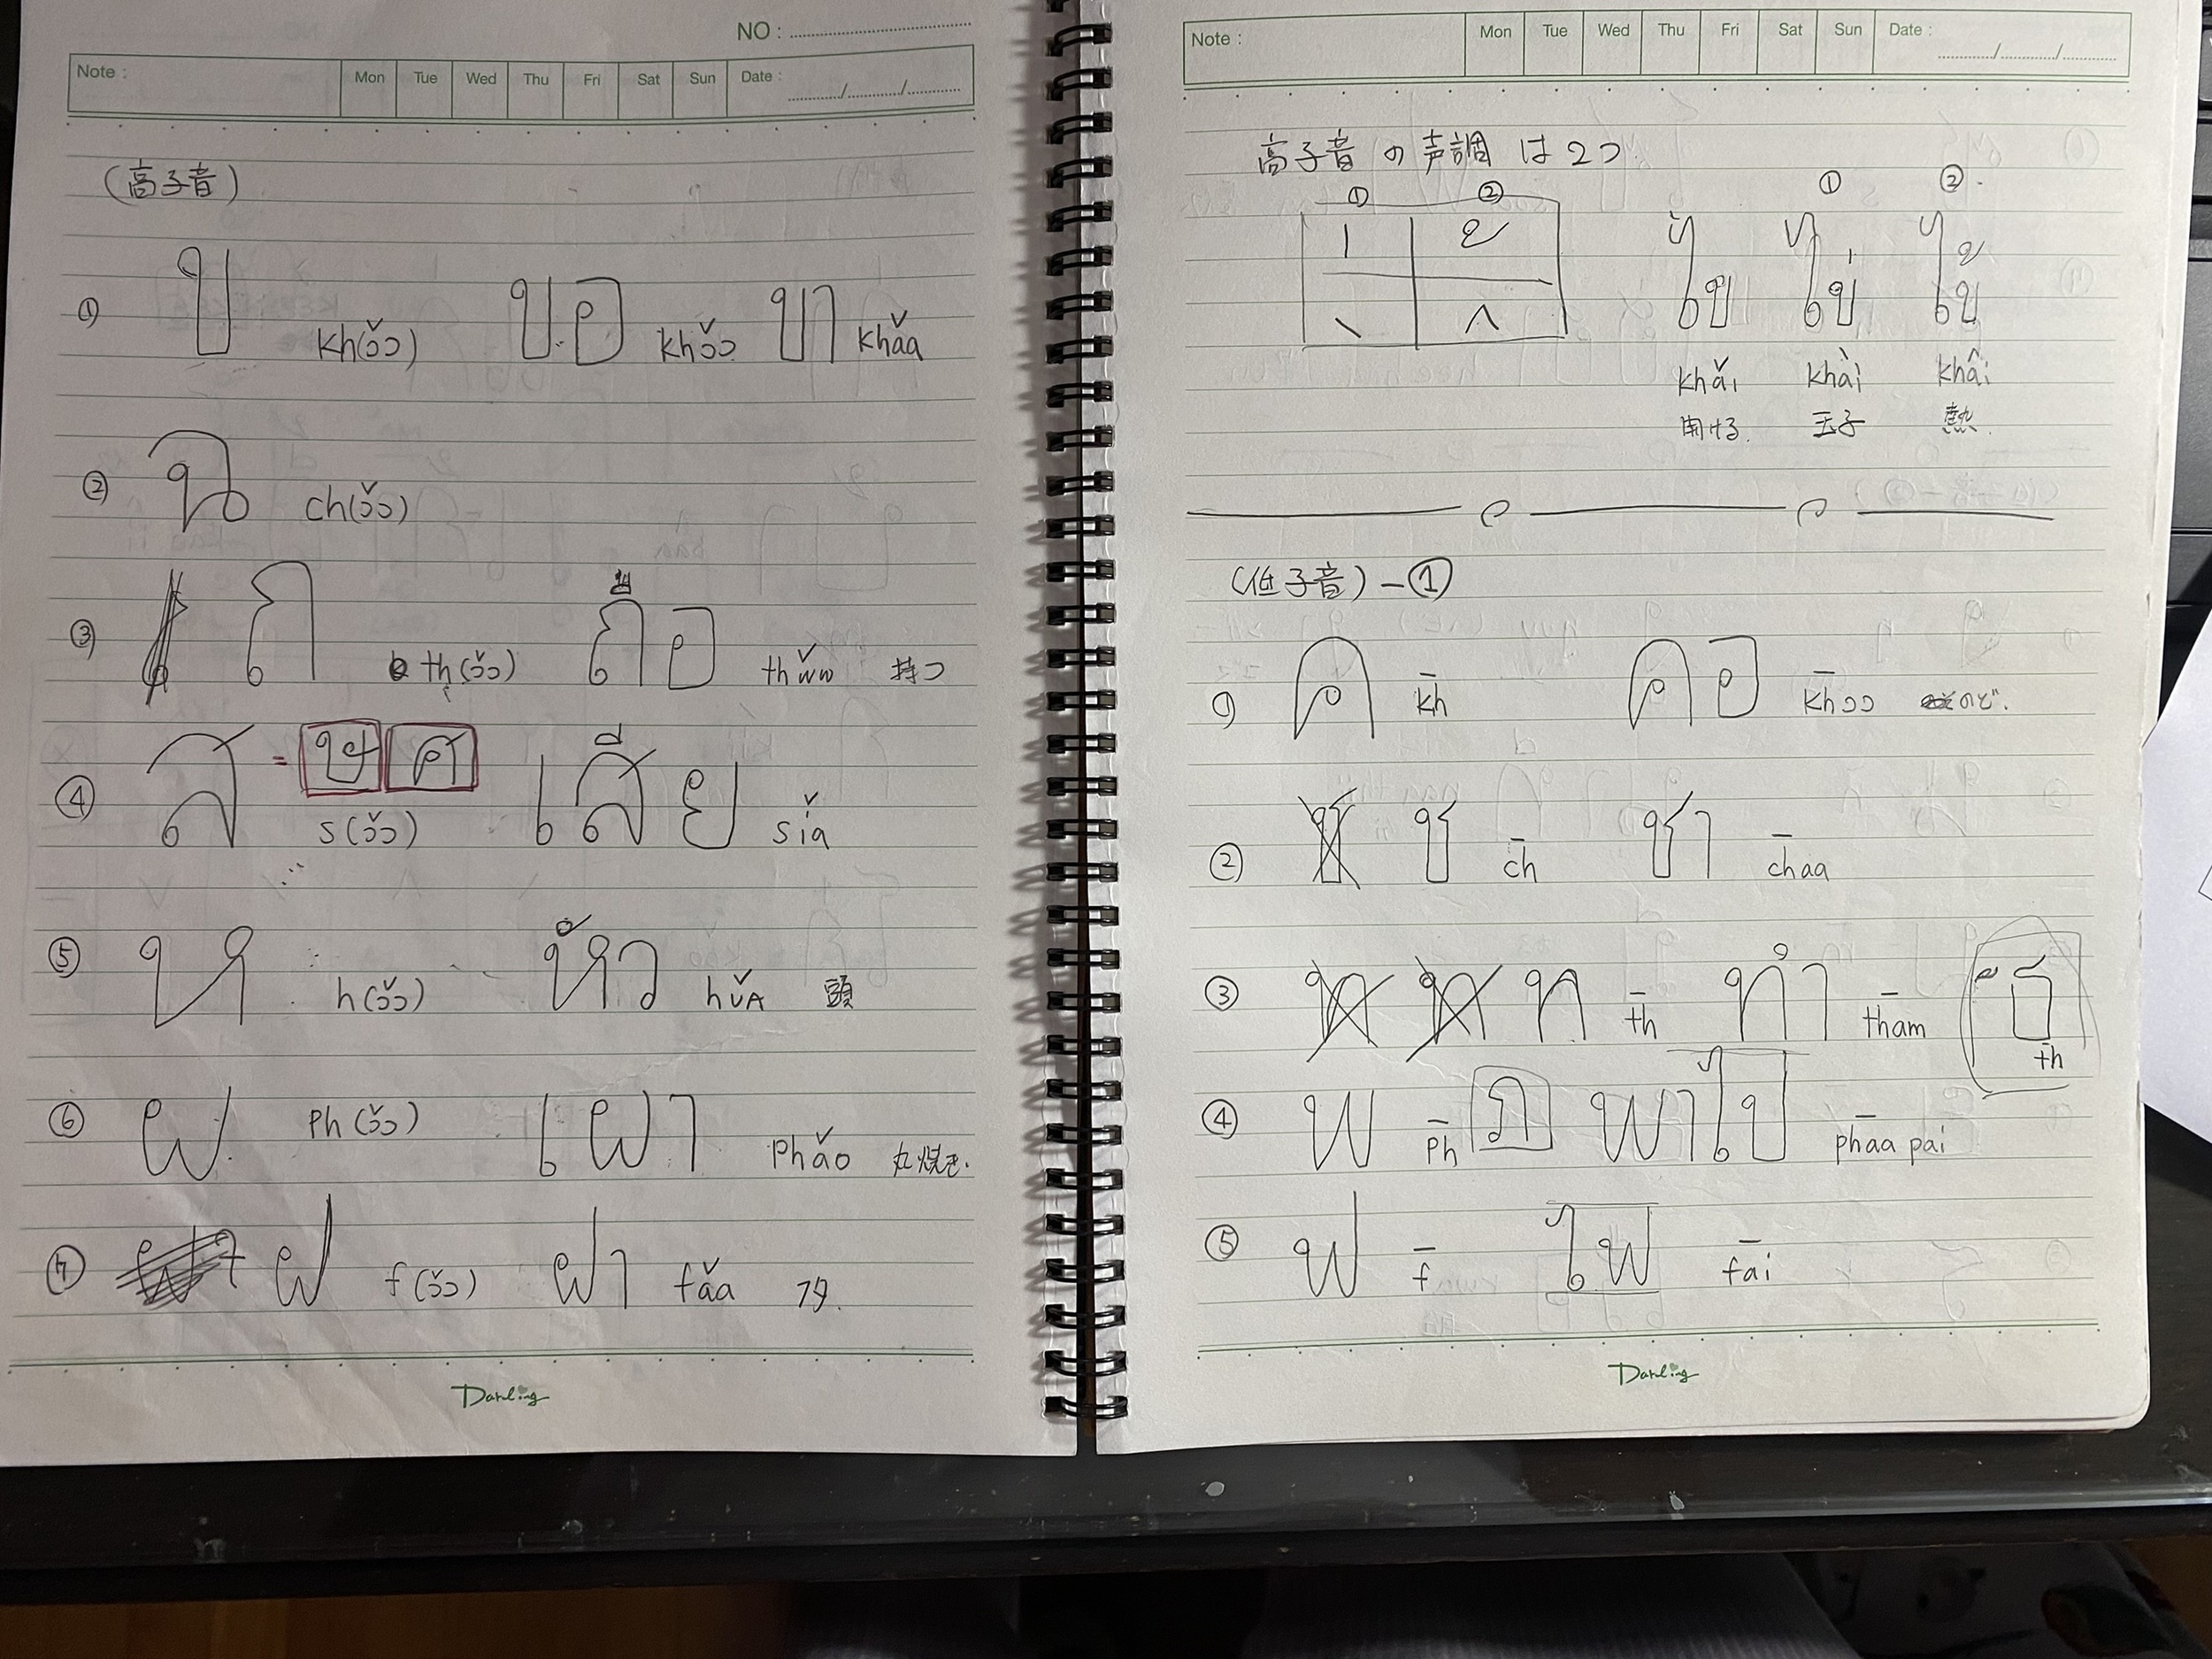 NO :
Note : Mon Tue Wed Thu Fri Sat Sun Date : ........../........../..........
(高子音)
① ข kh(ɔ̌ɔ) ขอ khɔ̌ɔ ขา khǎa
② ฉ ch(ɔ̌ɔ)
③ ถ th(ɔ̌ɔ) ถือ thʉ̌ʉ 持つ
④ ส = ษ ศ s(ɔ̌ɔ) เสีย sǐa
⑤ ห h(ɔ̌ɔ) หัว hǔA 頭
⑥ ผ ph(ɔ̌ɔ) เผา phǎo 丸焼き.
⑦ ฝ f(ɔ̌ɔ) ฝา fǎa フタ.
Darling
Note : Mon Tue Wed Thu Fri Sat Sun Date : ........../........../..........
高子音の声調は2つ
① ②
่ ้
\ ∧
① ②.
ไข ไข่ ไข้
khǎi khài khâi
開ける. 玉子 熱.
(低子音) - ①
① ค k̄h คอ k̄hɔɔ のど.
② ช c̄h ชา chāa
③ ท t̄h ทำ thām ธ th
④ พ p̄h ภ พาไป phāa pai
⑤ ฟ f̄ ไฟ fāi
Darling